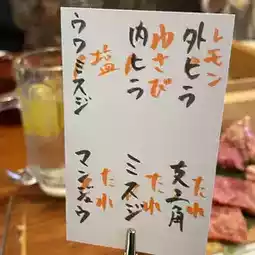 外ヒラ
レモン
内ヒラ
わさび
ウワミスジ
塩
友三角
たれ
ミスジ
たれ
マンジュウ
たれ